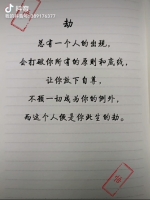 抖音
劫
总有一个人的出现，
会打破你所有的原则和底线，
让你放下自尊，
不顾一切成为你的例外，
而这个人便是你此生的劫。